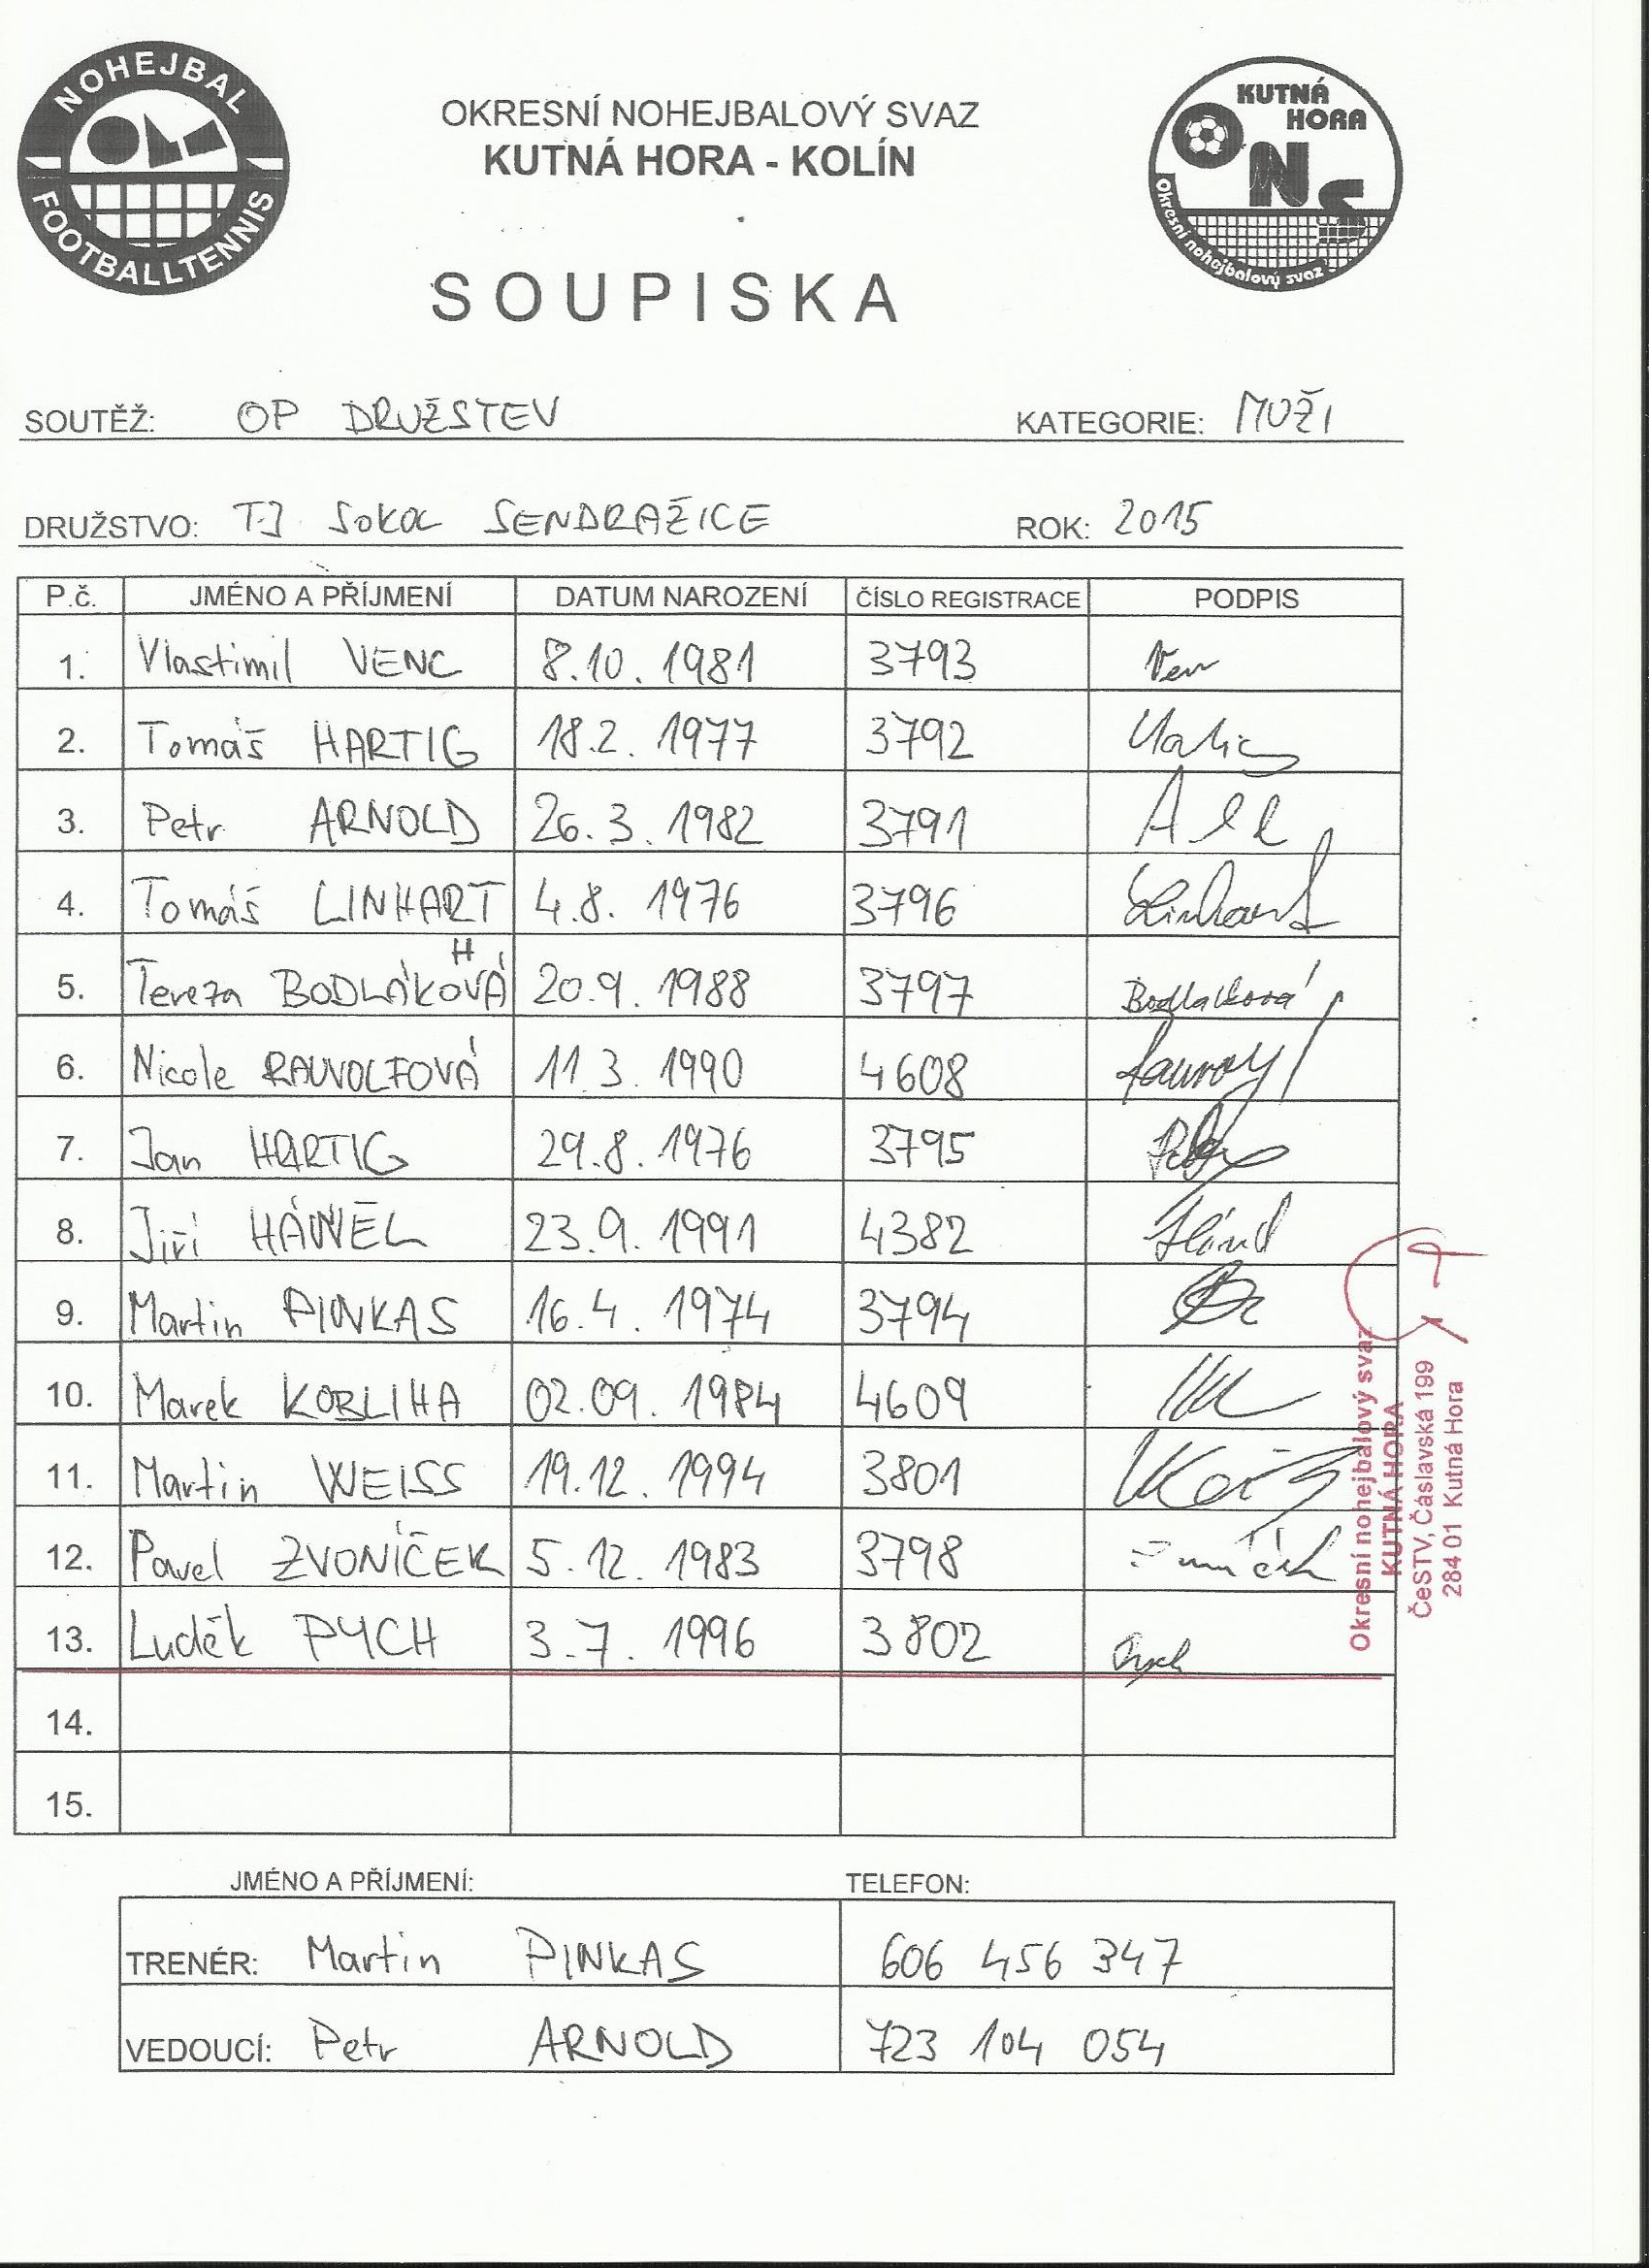 NOHEJBAL
FOOTBALLTENNIS
OKRESNÍ NOHEJBALOVÝ SVAZ
KUTNÁ HORA - KOLÍN
KUTNÁ
HORA
ONS
Okresní nohejbalový svaz
SOUPISKA
SOUTĚŽ: OP DRUŽSTEV KATEGORIE: MUŽI
DRUŽSTVO: TJ SOKOL SENDRAŽICE ROK: 2015
P.č. JMÉNO A PŘÍJMENÍ DATUM NAROZENÍ ČÍSLO REGISTRACE PODPIS
1. Vlastimil VENC 8.10. 1981 3793
2. Tomáš HARTIG 18.2. 1977 3792
3. Petr ARNOLD 26.3. 1982 3791
4. Tomáš LINHART 4.8. 1976 3796 Linhart
H
5. Tereza BODLÁKOVÁ 20.9. 1988 3797 Bodláková
6. Nicole RAUVOLFOVÁ 11.3. 1990 4608
7. Jan HARTIG 29.8. 1976 3795
8. Jiří 23.9. 1991 4382
9. Martin PINKAS 16.4. 1974 3794
10. Marek KOBLIHA 02.09. 1984 4609
11. Martin WEISS 19.12. 1994 3801
12. Pavel ZVONÍČEK 5.12. 1983 3798
13. Luděk PYCH 3.7. 1996 3802 Pych
14.
15.
Okresní nohejbalový svaz
KUTNÁ HORA
ČeSTV, Čáslavská 199
284 01 Kutná Hora
JMÉNO A PŘÍJMENÍ: TELEFON:
TRENÉR: Martin PINKAS 606 456 347
VEDOUCÍ: Petr ARNOLD 723 104 054